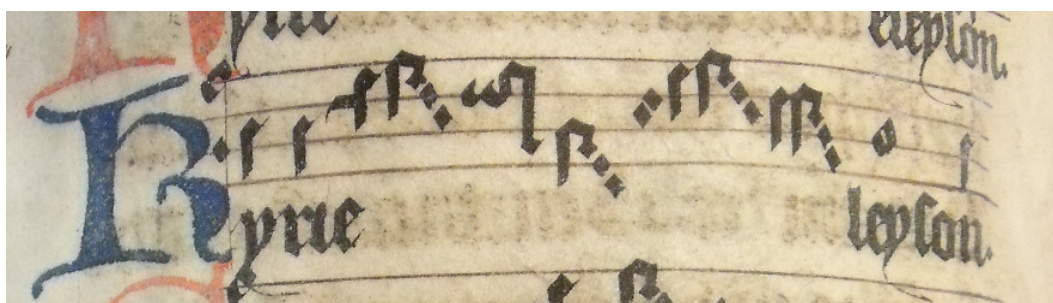 kyrie eleyson.
Kyrie leyson.